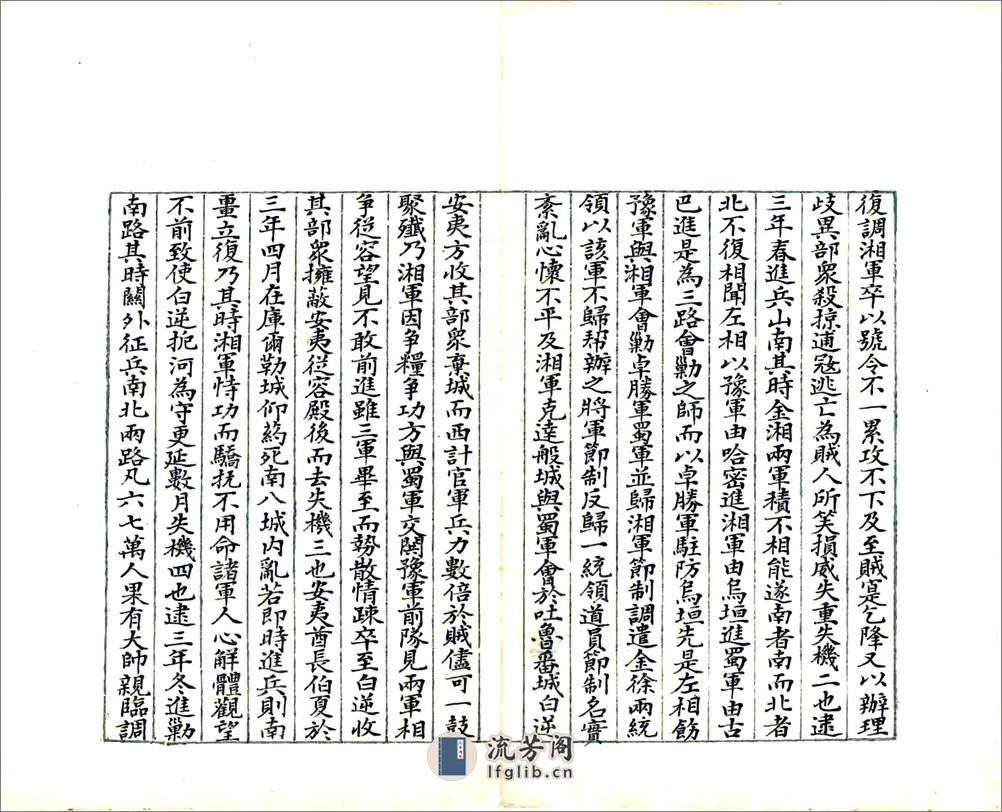 復調湘軍卒以號令不一累攻不下及至賊寔乞降又以辦理
歧異部眾殺掠逋寇逃亡為賊人所笑損威失重失機二也逮
三年春進兵山南其時金湘兩軍積不相能遂南者南而北者
北不復相聞左相以豫軍由哈密進湘軍由烏垣進蜀軍由古
巴進是為三路會勦之師而以卓勝軍駐防烏垣先是左相飭
豫軍與湘軍會勦卓勝軍蜀軍並歸湘軍節制調遣金徐兩統
領以該軍不歸帮辦之將軍節制反歸一統領道員節制名實
紊亂心懷不平及湘軍克達般城與蜀軍會於吐魯番城白逆
安夷方收其部眾棄城而西計官軍兵力數倍於賊儘可一鼓
聚殲乃湘軍因爭糧爭功方與蜀軍交閧豫軍前隊見兩軍相
爭從容望見不敢前進雖三軍畢至而勢散情疎卒至白逆收
其部眾擁蔽安夷從容殿後而去失機三也安夷酋長伯夏於
三年四月在庫爾勒城仰葯死南八城內亂若即時進兵則南
畺立復乃其時湘軍恃功而驕抚不用命諸軍人心解體觀望
不前致使白逆扼河為守更延數月失機四也逮三年冬進勦
南路其時關外征兵南北兩路凡六七萬人果有大帥親臨調
流芳阁
lfglib.cn